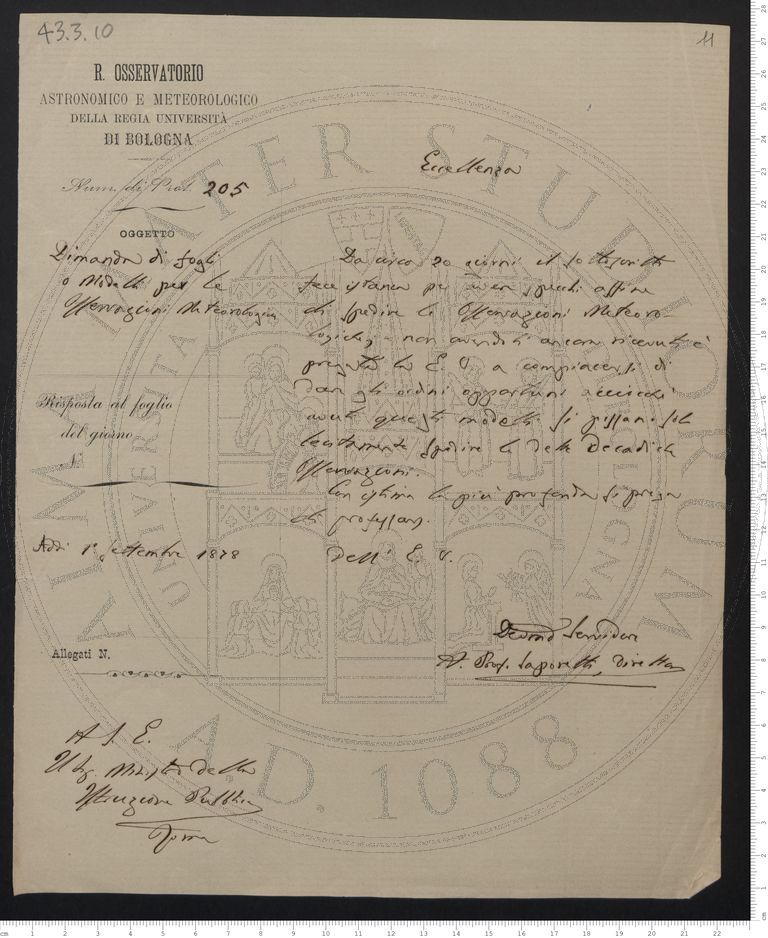 43.3.10
11
R. OSSERVATORIO
ASTRONOMICO E METEOROLOGICO
DELLA REGIA UNIVERSITÀ
DI BOLOGNA
Num. di Prot. 205
OGGETTO
Dimanda di fogli
o Modelli per le
Osservazioni Meteorologiche
Risposta al foglio
del giorno
Addì 1° Settembre 1878
Allegati N.
Eccellenza
Da circa 20 giorni il sottoscritto
fece istanza per aver specchi affine
di spedire le Osservazioni Meteoro-
logiche, e non avendoli ancora ricevuti è
pregata la E. V. a compiacersi di
dare gli ordini opportuni acciocchè
avuti questi modelli si possano sol-
lecitamente spedire le dette Decadiche
Osservazioni.
Con istima la più profonda si pregia
di professarsi
Dell' E. V.
Devmo Servidore
A. Prof. Saporetti, Direttore
A S. E.
Il Sig. Ministro della
Istruzione Pubblica
Roma
ALMA MATER STUDIORUM
UNIVERSITÀ DI BOLOGNA
A.D. 1088